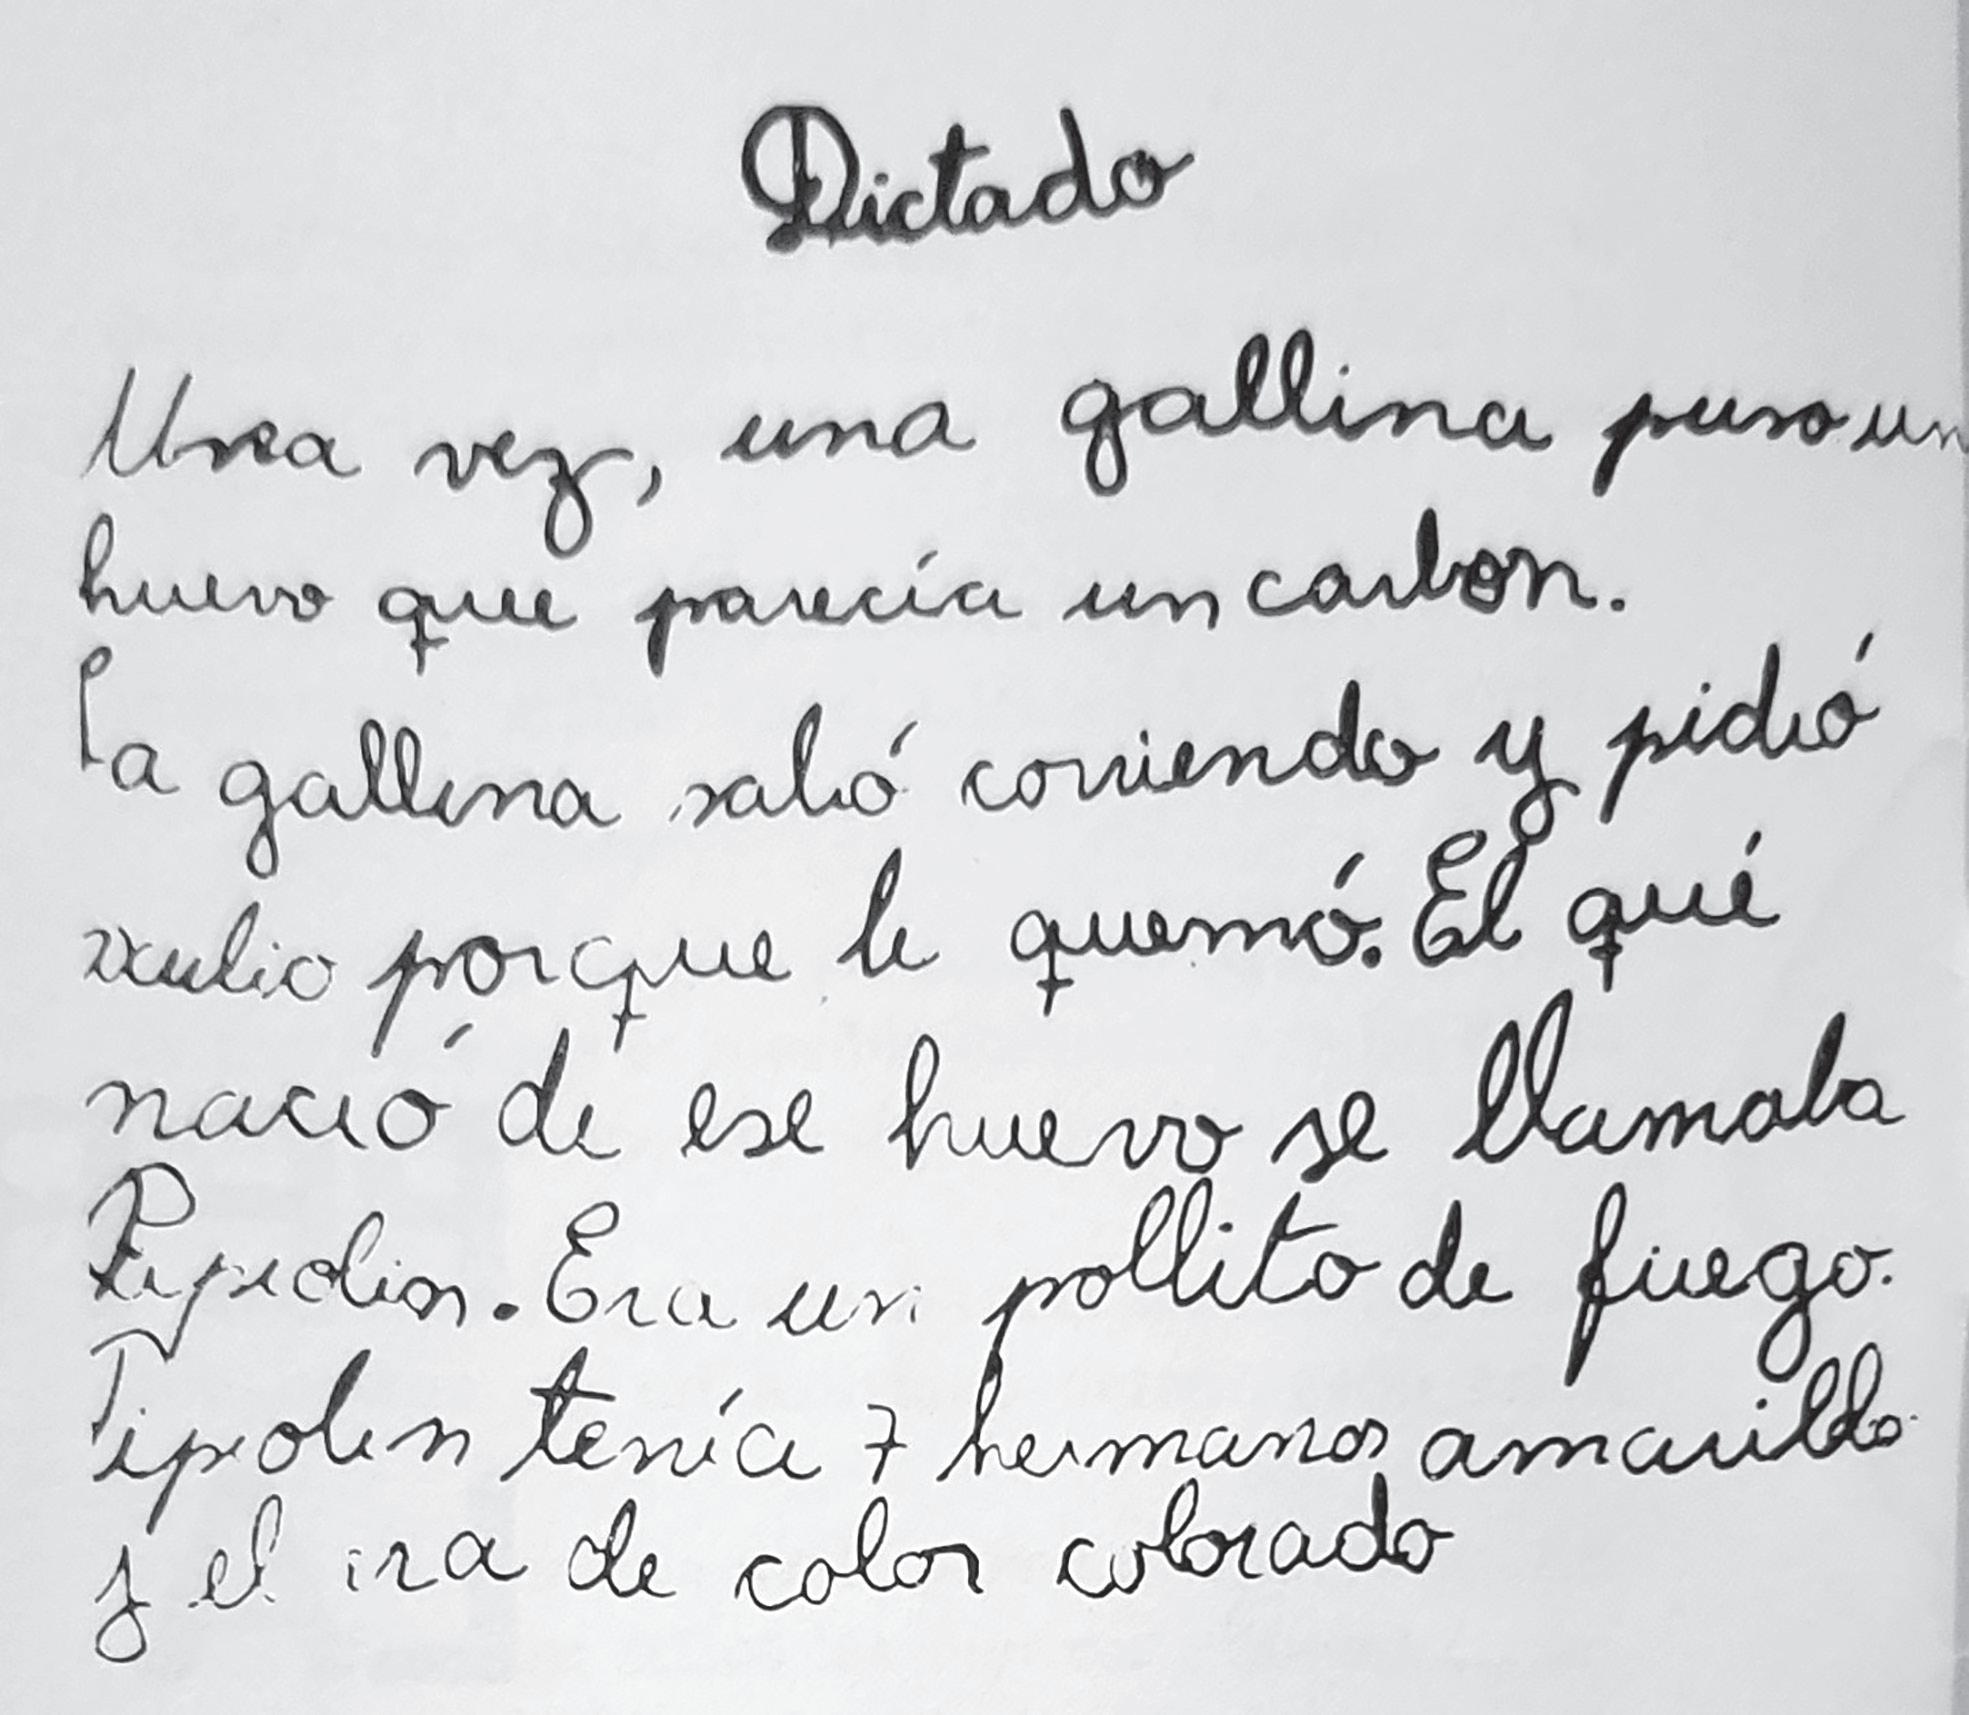 Dictado
Una vez, una gallina puso un
huevo que parecía un carbon.
La gallina salió corriendo y pidió
porque le quemó. El qué
nació de ese huevo se llamaba
Era un pollito de fuego.
Pipolin tenía 7 hermanos amarillo
y el era de color colorado